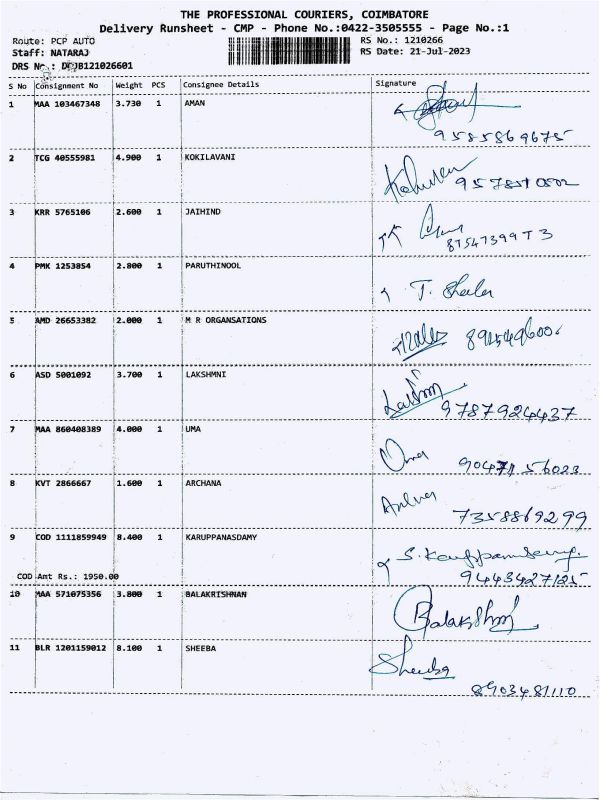 THE PROFESSIONAL COURIERS, COIMBATORE
Delivery Runsheet - CMP - Phone No.:0422-3505555 - Page No.:1
Route: PCP AUTO RS No.: 1210266
Staff: NATARAJ RS Date: 21-Jul-2023
DRS No.:
S No Consignment No Weight PCS Consignee Details Signature
1 MAA 103467348 3.730 1 AMAN
9585869675
2 TCG 40555981 4.900 1 KOKILAVANI
3 KRR 5765106 2.600 1 JAIHIND
4 PMK 1253854 2.800 1 PARUTHINOOL
T. Sheela
5 AMD 26653382 2.000 1 M R ORGANSATIONS
6 ASD 5001092 3.700 1 LAKSHMNI
9787924437
7 MAA 860408389 4.000 1 UMA
Uma
8 KVT 2866667 1.600 1 ARCHANA
7358869299
9 COD 1111859949 8.400 1 KARUPPANASDAMY
COD Amt Rs.: 1950.00
9443427125
10 MAA 571075356 3.800 1 BALAKRISHNAN
11 BLR 1201159012 8.100 1 SHEEBA
Sheeba
8903481110